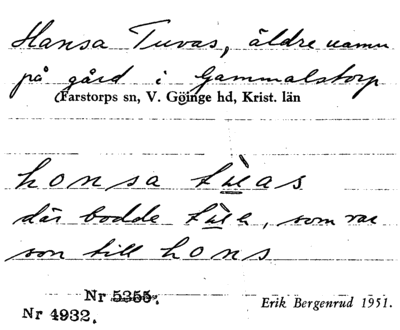 Hansa Tuvas, äldre namn
på gård i Gammalstorp
Farstorps sn, V. Göinge hd, Krist. län
honsa tu̲as
där bodde tu̲e, som var
son till hons
Nr 5355.
Nr 4932.
Erik Bergenrud 1951.